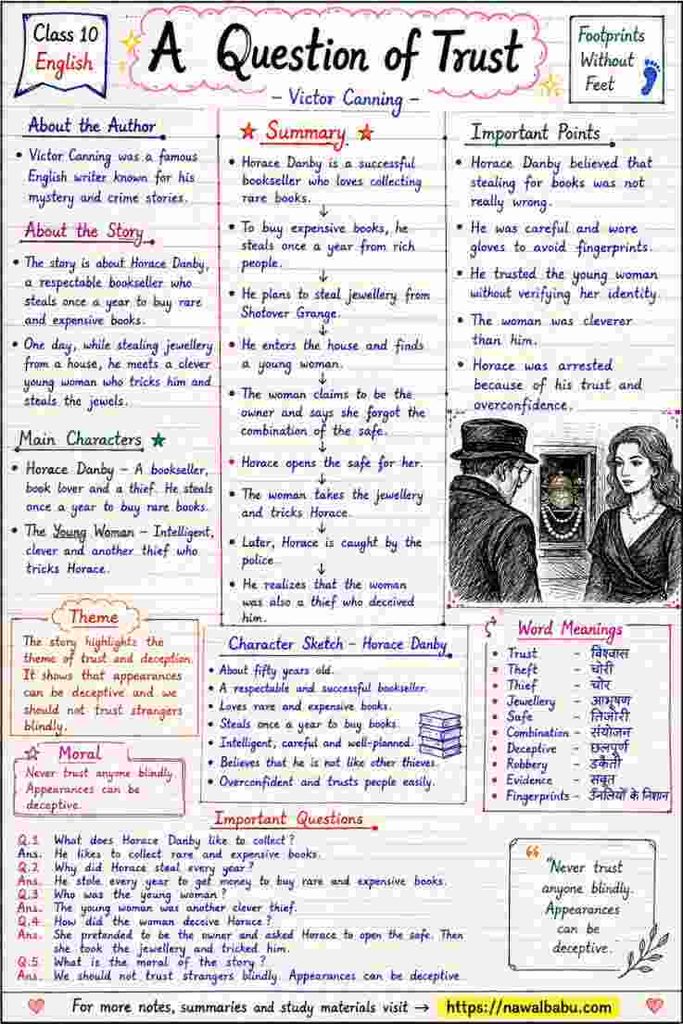 Class 10
English
A Question of Trust
– Victor Canning –
Footprints
Without
Feet
About the Author
• Victor Canning was a famous
English writer known for his
mystery and crime stories.
About the Story
• The story is about Horace Danby,
a respectable bookseller who
steals once a year to buy rare
and expensive books.
• One day, while stealing jewellery
from a house, he meets a clever
young woman who tricks him and
steals the jewels.
Main Characters
• Horace Danby – A bookseller,
book lover and a thief. He steals
once a year to buy rare books.
• The Young Woman – Intelligent,
clever and another thief who
tricks Horace.
Theme
The story highlights the
theme of trust and deception.
It shows that appearances
can be deceptive and we
should not trust strangers
blindly.
Moral
Never trust anyone blindly.
Appearances can be
deceptive.
Summary
• Horace Danby is a successful
bookseller who loves collecting
rare books.
↓
• To buy expensive books, he
steals once a year from rich
people.
↓
• He plans to steal jewellery from
Shotover Grange.
↓
• He enters the house and finds
a young woman.
↓
• The woman claims to be the
owner and says she forgot the
combination of the safe.
↓
• Horace opens the safe for her.
↓
• The woman takes the jewellery
and tricks Horace.
↓
• Later, Horace is caught by the
police
↓
• He realizes that the woman
was also a thief who deceived
him.
Important Points
• Horace Danby believed that
stealing for books was not
really wrong.
• He was careful and wore
gloves to avoid fingerprints.
• He trusted the young woman
without verifying her identity.
• The woman was cleverer
than him.
• Horace was arrested
because of his trust and
overconfidence.
Character Sketch – Horace Danby
• About fifty years old.
• A respectable and successful bookseller.
• Loves rare and expensive books.
• Steals once a year to buy books.
• Intelligent, careful and well-planned.
• Believes that he is not like other thieves.
• Overconfident and trusts people easily.
Word Meanings
• Trust – विश्वास
• Theft – चोरी
• Thief – चोर
• Jewellery – आभूषण
• Safe – तिजोरी
• Combination – संयोजन
• Deceptive – छलपूर्ण
• Robbery – डकैती
• Evidence – सबूत
• Fingerprints – उंगलियों के निशान
Important Questions
Q.1 What does Horace Danby like to collect?
Ans. He likes to collect rare and expensive books.
Q.2 Why did Horace steal every year?
Ans. He stole every year to get money to buy rare and expensive books.
Q.3 Who was the young woman?
Ans. The young woman was another clever thief.
Q.4 How did the woman deceive Horace?
Ans. She pretended to be the owner and asked Horace to open the safe. Then
she took the jewellery and tricked him.
Q.5 What is the moral of the story?
Ans. We should not trust strangers blindly. Appearances can be deceptive
"Never trust
anyone blindly.
Appearances
can be
deceptive.
For more notes, summaries and study materials visit → https://nawalbabu.com